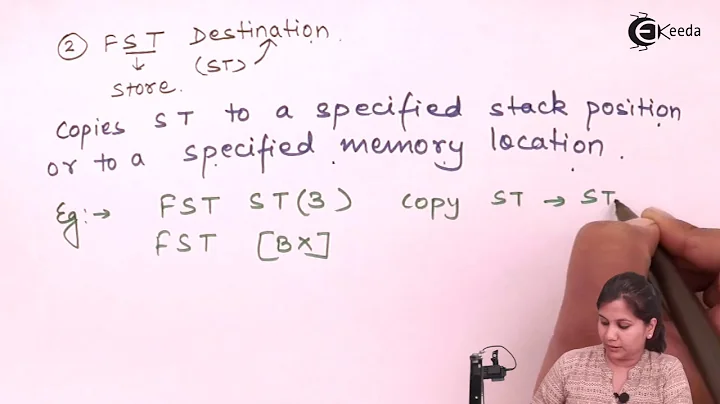 ② FST Destination.
(ST)
↓
store.
Copies ST to a specified stack position
or to a specified memory location.
Eg:→ FST ST(3) copy ST → ST
FST [BX]
EKeeda